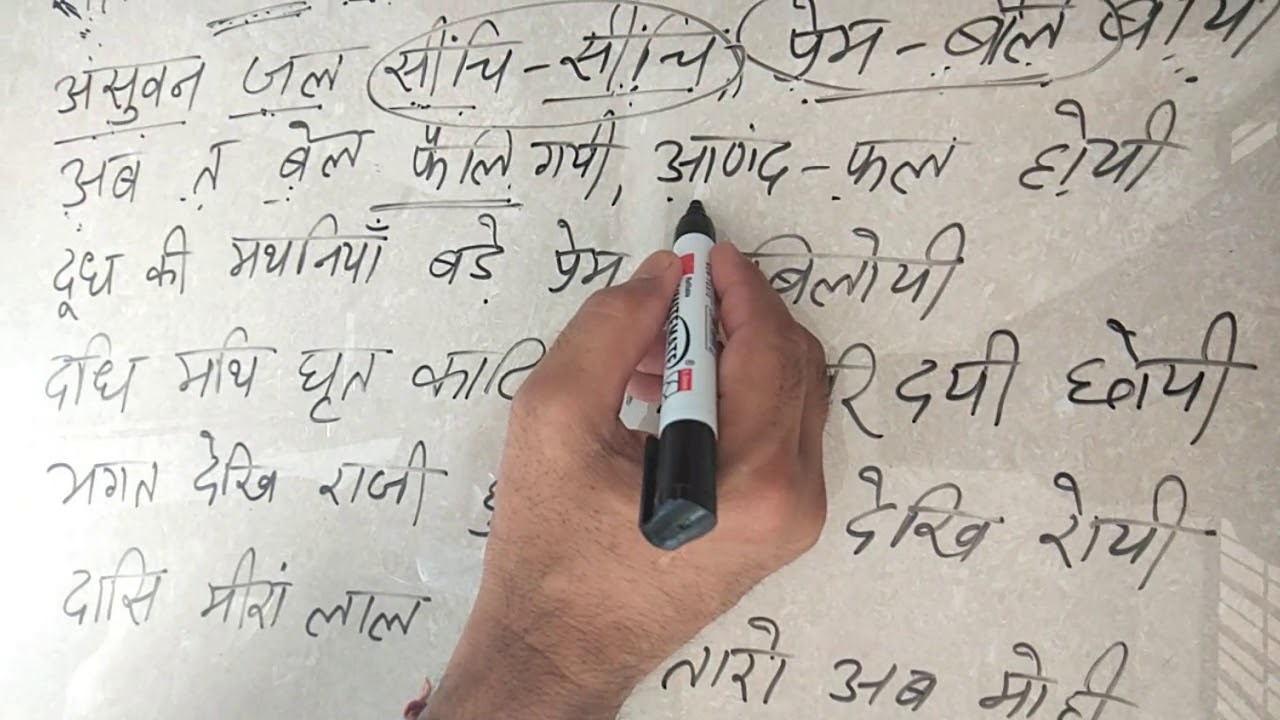 अंसुवन जल सींचि-सींचि, प्रेम-बेलि बोयी
अब त बेल फैलि गयी, आणंद-फल होयी
दूध की मथनियाँ बड़े प्रेम बिलोयी
दधि मथि घृत दयी छोयी
भगत देखि राजी देखि रोयी
दासि मीरां लाल तारो अब मोही